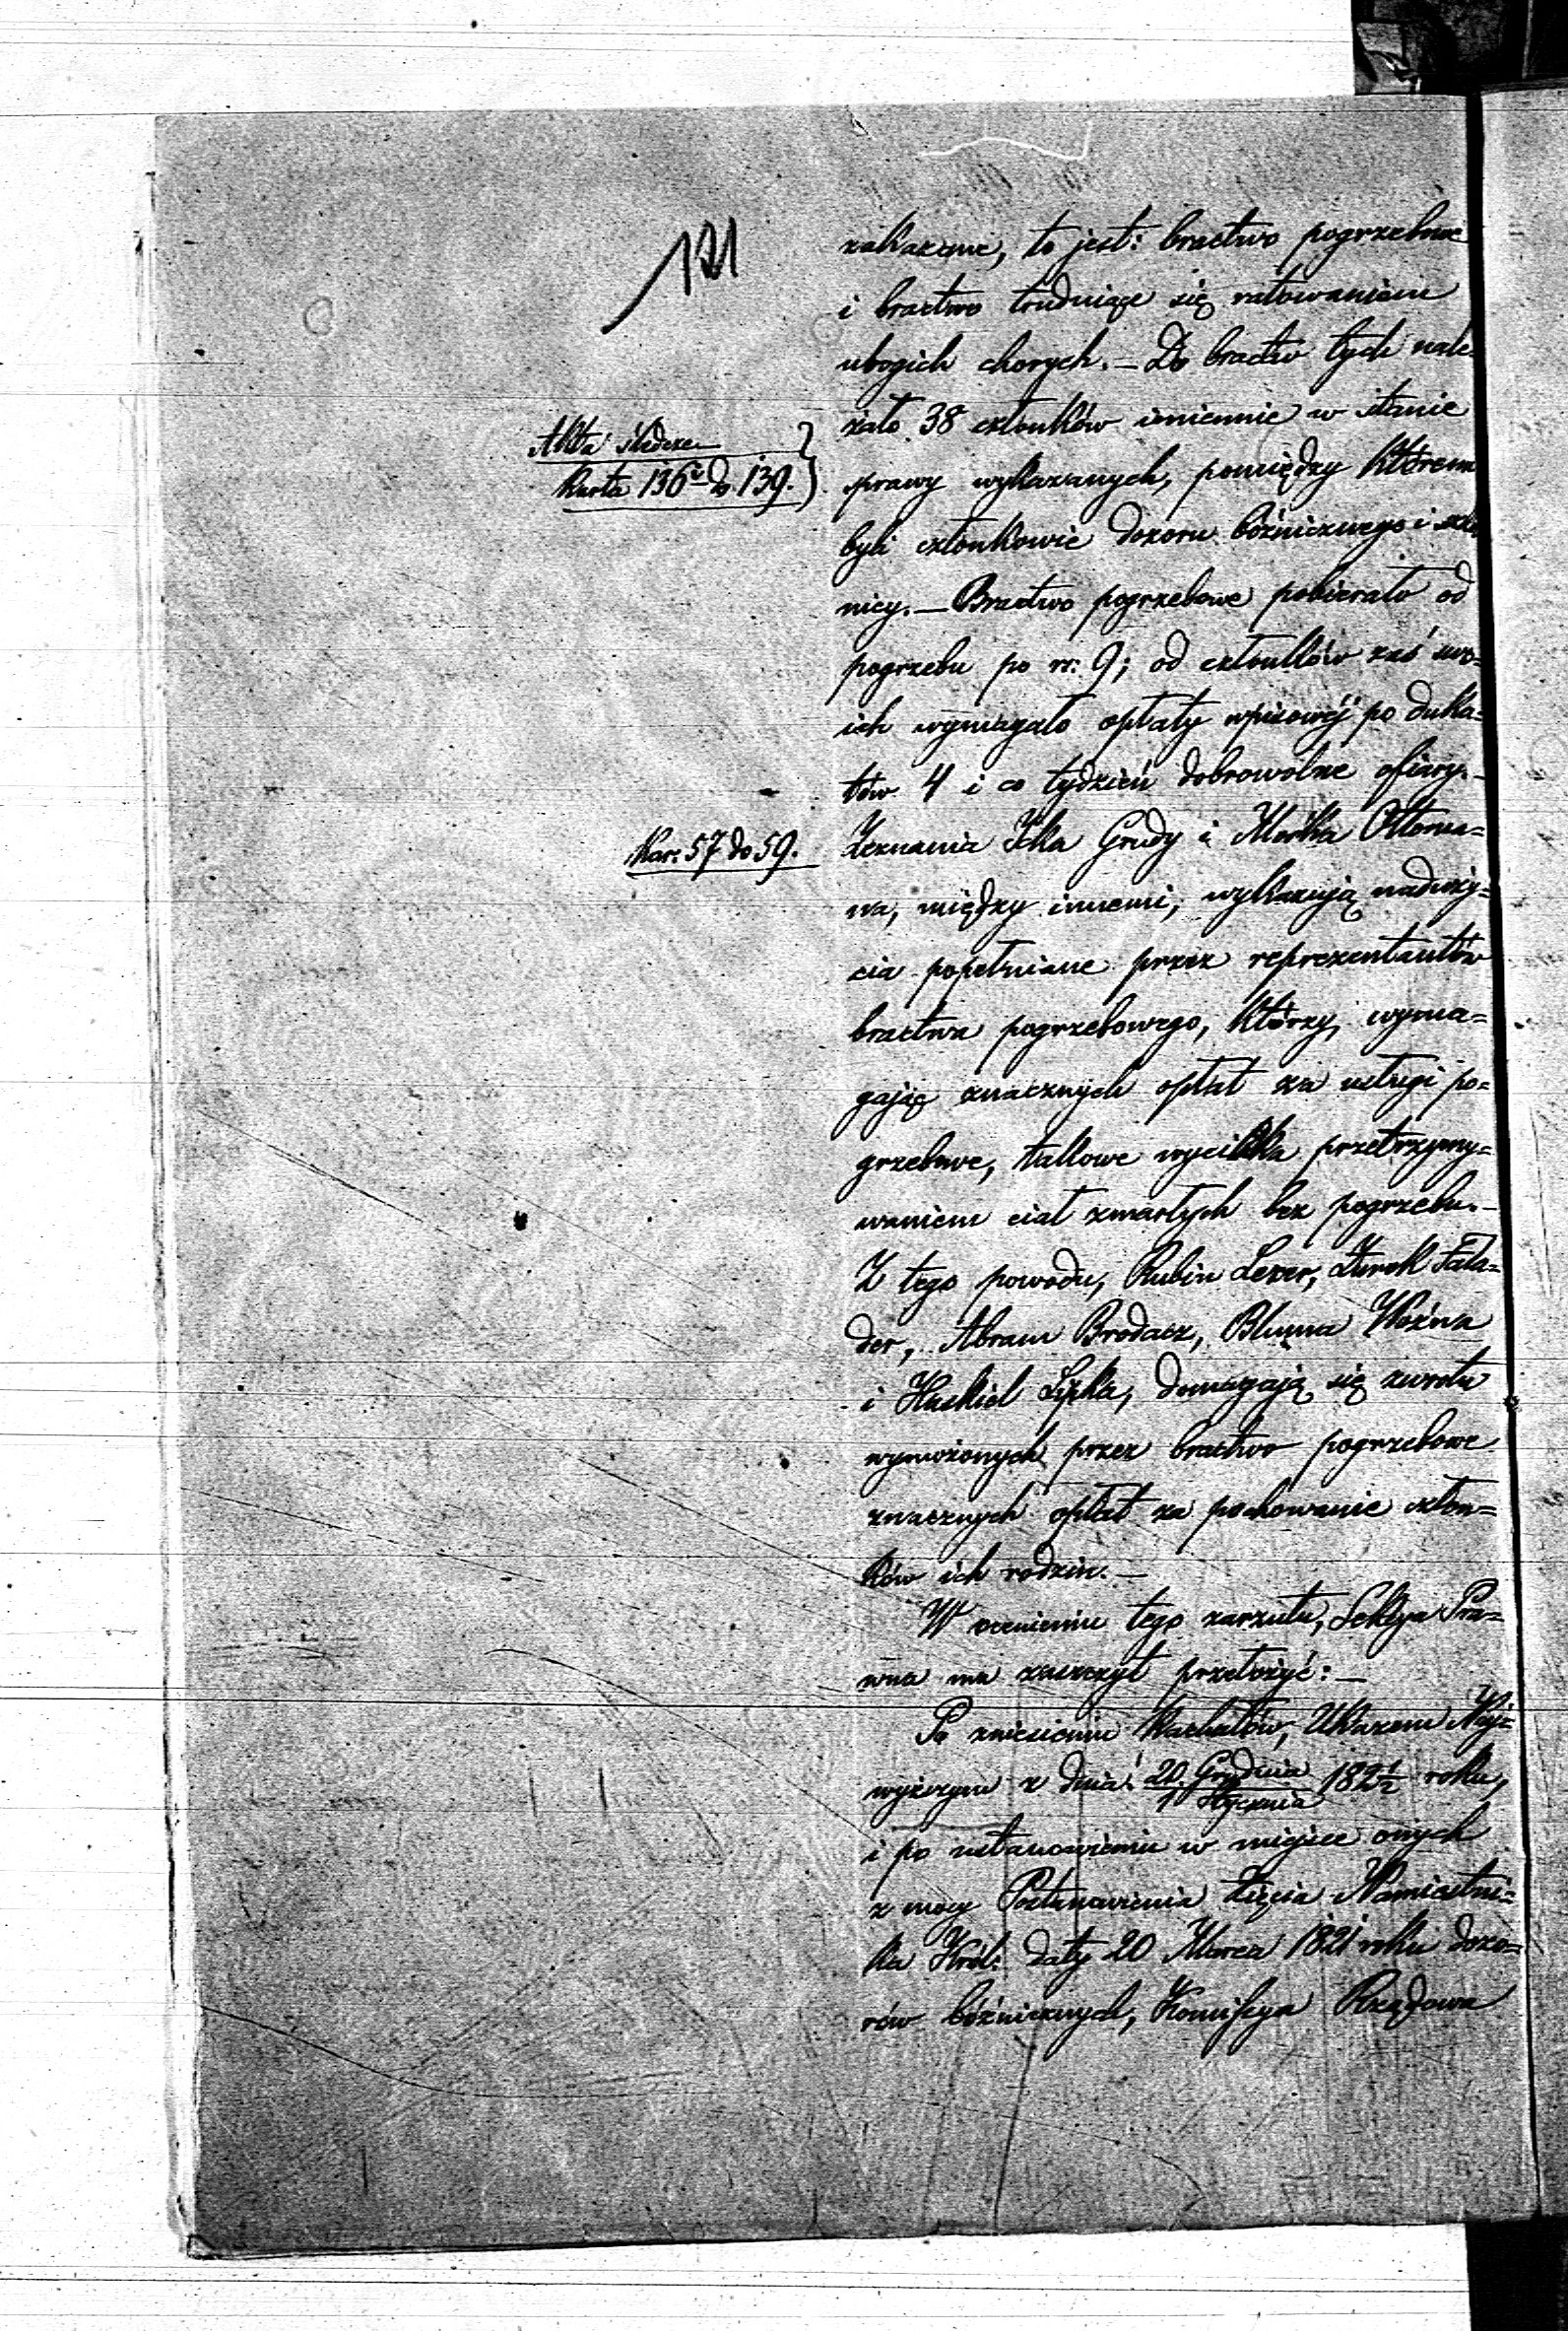 121
zakazane, to jest: bractwo pogrzebowe
i bractwo trudniące się ratowaniem
ubogich chorych. – Do bractw tych nale-
żało 38 członków imiennie w stanie
Akta śledcze
Karta 136 do 139.
sprawy wykazanych, pomiędzy którem
byli członkowie dozoru bóźniczego i
nicy. – Bractwo pogrzebowe pobierało od
pogrzebu po rr. 9; od członków zaś swo=
ich wymagało opłaty wpisowéj po duka=
tów 4 i co tydzień dobrowolne ofiary. –
Kar: 57 do 59.
Zeznania Icka Grudy i Mośka
na, między innemi, wykazują naduży=
cia popełniane przez reprezentantów
bractwa pogrzebowego, którzy, wyma=
gając znacznych opłat za usługi po=
grzebowe, takowe wyciskla przetrzymy=
waniem ciał zmarłych bez pogrzebu. –
Z tego powodu, Rubin Lezer, Żurek Fala=
der, Abram Brodacz, Bluma Woźna
i Haskiel Łyżka, domagają się zwrotu
wymożonych przez bractwo pogrzebowe
znacznych opłat za pochowanie człon=
ków ich rodzin. –
W ocenieniu tego zarzutu, Sekcya Pra=
wna ma zaszczyt przełożyć: –
Po zniesieniu Kachałów, Ukazem Naj=
wyższym z dnia 20 Grudnia / 1 Stycznia 182 1/2 roku,
i po ustanowieniu w miejsce onych
z mocy Postanowienia Xięcia Namiestni=
ka Król: daty 20 Marca 1821 roku dozo=
rów bóźnicznych, Komissya Rządowa